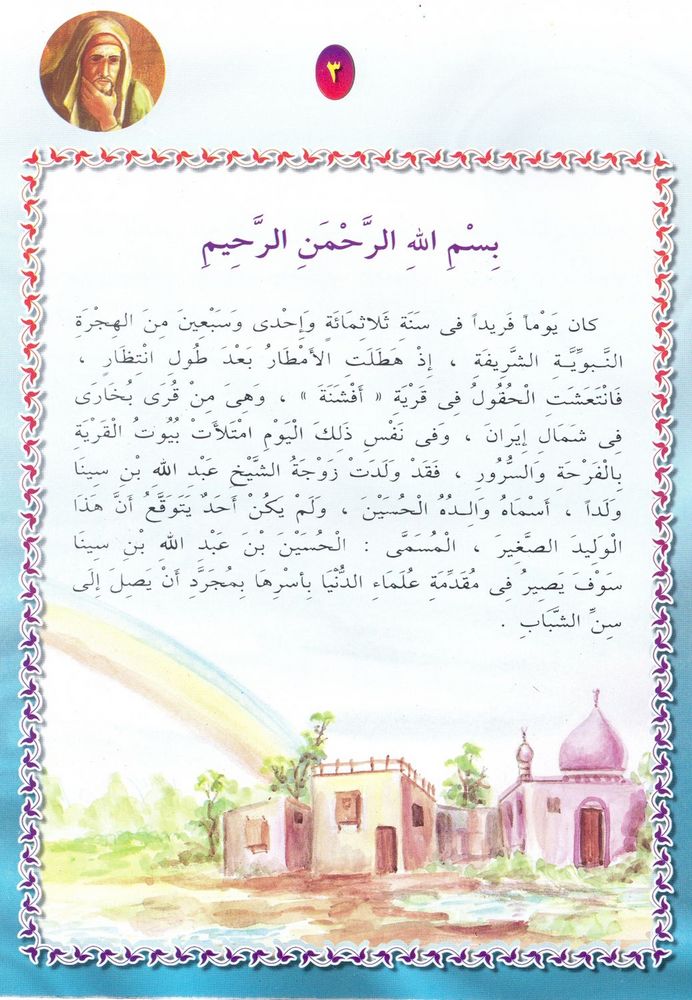 ٣
بِسْمِ اللهِ الرَّحْمَنِ الرَّحِيمِ
كان يَوْماً فَرِيداً فى سَنَةِ ثَلاثِمَائَةٍ وَإِحْدى وَسَبْعينَ مِنَ الهجْرَةِ
النَّـبوِيَّـةِ الشَّرِيفَةِ ، إِذْ هَطَلَتِ الأَمْطَارُ بَعْدَ طُول انْتظَارٍ ،
فَانْتَعَشَتِ الْحُقُولُ فِى قَرْيَةِ « أَفْشَنَةَ » ، وَهِىَ مِنْ قُرَى بُخَارَى
فِى شَمَالِ إِيرَانَ ، وَفى نَفْسِ ذلِكَ الْيَوْمِ امْتَلأَتْ بُيُوتُ الْقَرْيَةِ
بِالْفَرْحَةِ وَالسُّرُورِ ، فَقَدْ وَلَدَتْ زَوْجَةُ الشَّيْخِ عَبْدِ الله بْنِ سِينَا
وَلَداً ، أَسْمَاهُ وَالـدُهُ الْحُسَيْنَ ، وَلَمْ يَكُنْ أَحَدٌ يَتَوَقَّعُ أَنَّ هَذَا
الْوَلِيدَ الصَّغِيرَ ، الْمُسَمَّى : الْحُسَيْنَ بْنَ عَبْدِ الله بْنِ سِينَا
سوْفَ يَصِيرُ فِى مُقَدِّمَةِ عُلَمَاءِ الدُّنْيَا بِأَسْرِهَا بِمُجَرَّدِ أَنْ يَصِلَ إِلَى
سِنِّ الشَّبَابِ .